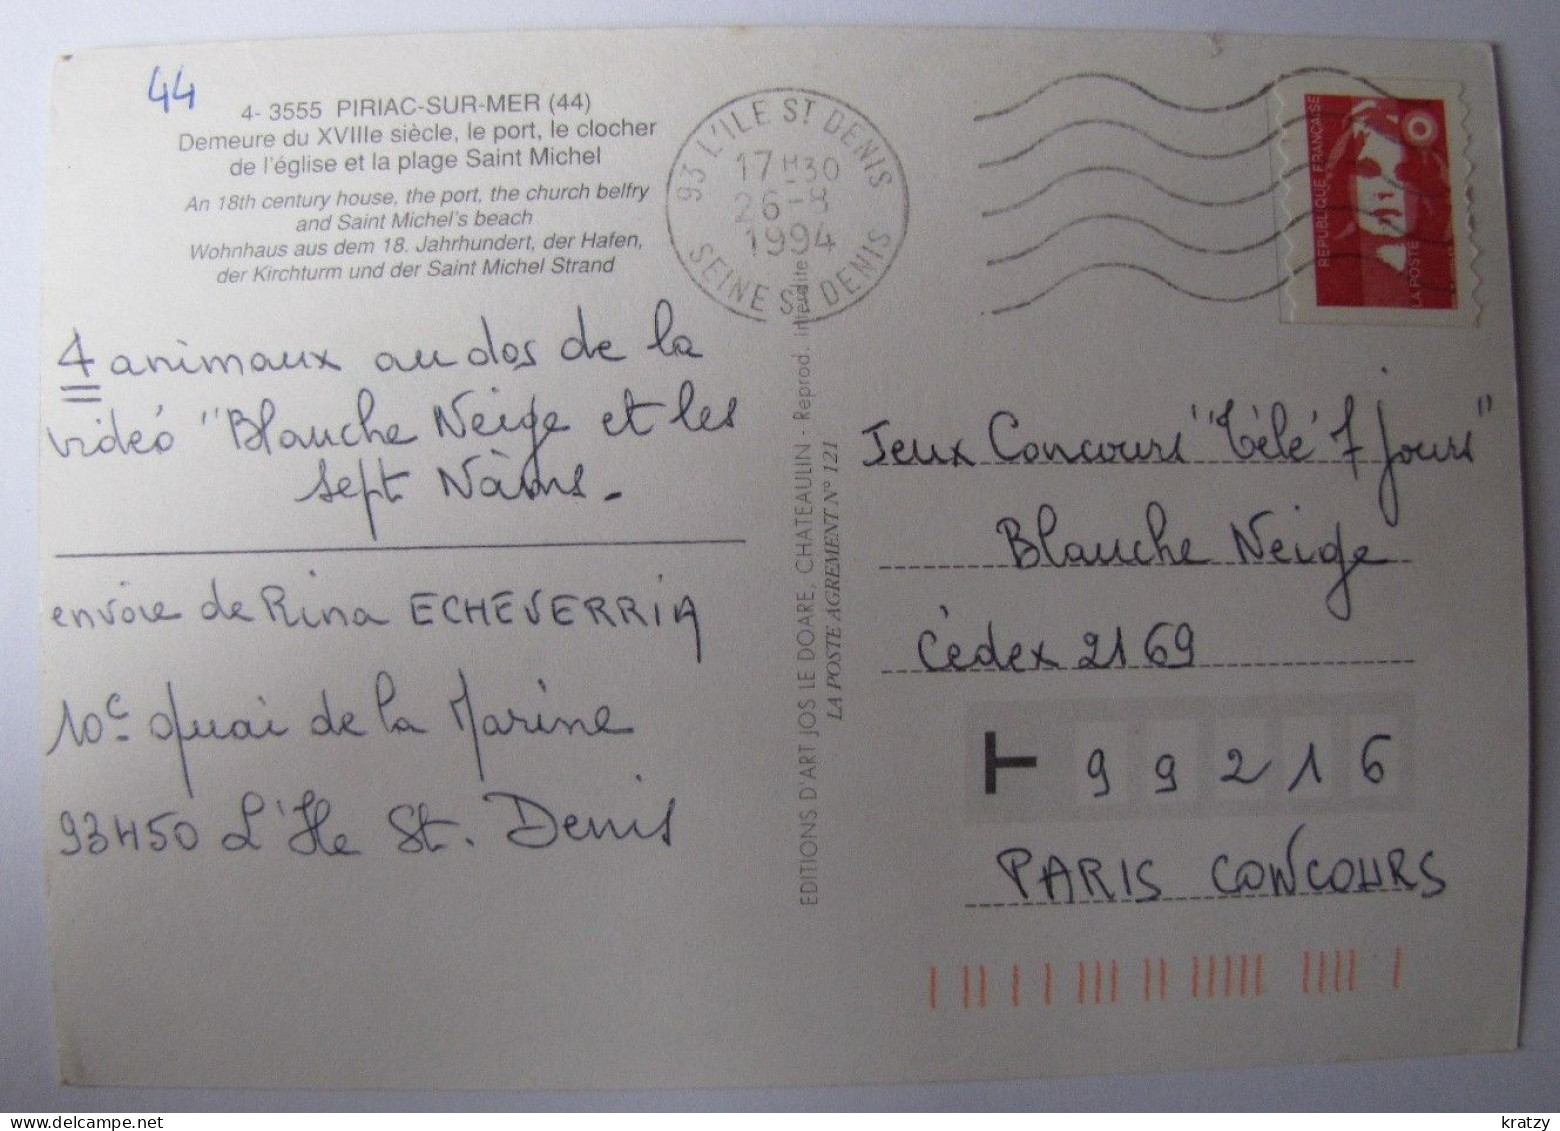 44
4- 3555 PIRIAC-SUR-MER (44)
Demeure du XVIIIe siècle, le port, le clocher
de l'église et la plage Saint Michel
An 18th century house, the port, the church belfry
and Saint Michel's beach
Wohnhaus aus dem 18. Jahrhundert, der Hafen,
der Kirchturm und der Saint Michel Strand
4 animaux au dos de la
vidéo "Blanche Neige et les
sept Nains.
envoie de Rina ECHEVERRIA
10c quai de la Marine
93450 L'Ile St. Denis
EDITIONS D'ART JOS LE DOARE, CHATEAULIN - Reprod. interdite
LA POSTE AGREMENT N° 121
93 L'ILE ST DENIS
17H30
26-8
1994
SEINE ST DENIS
REPUBLIQUE FRANÇAISE
LA POSTE
Jeux Concours "Télé 7 jours"
Blanche Neige
Cédex 2169
T 99216
PARIS CONCOURS
kratzy